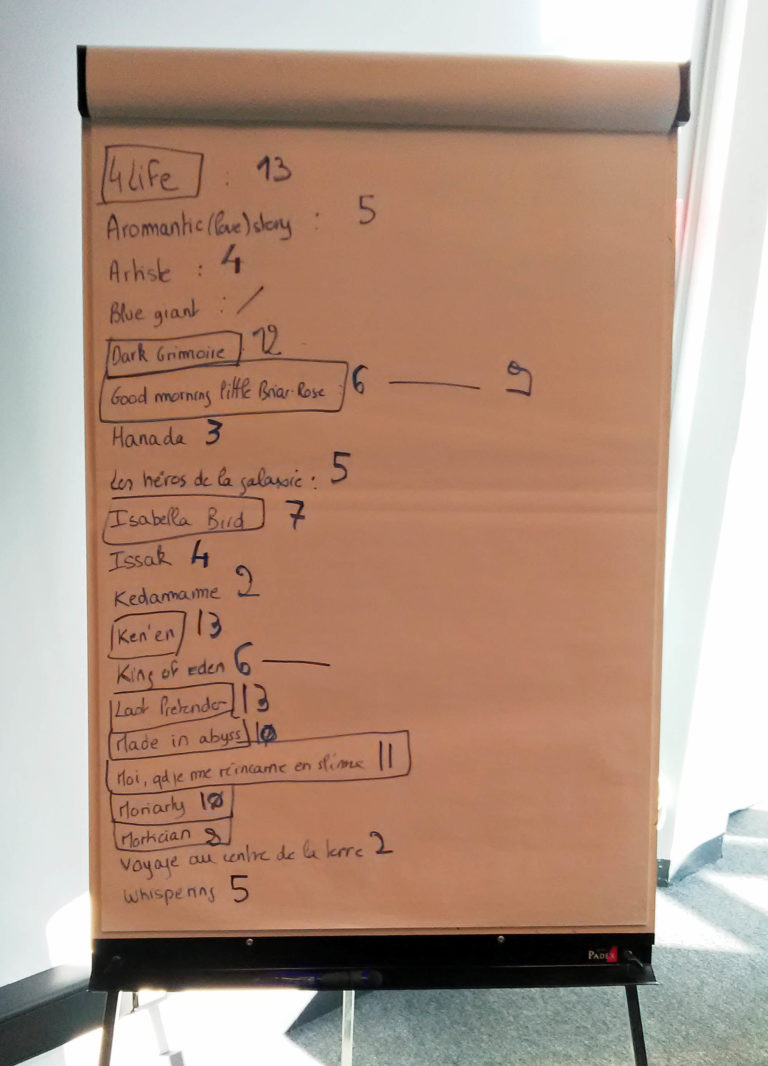 4 Life : 13
Aromantic (love) story : 5
Artiste : 4
Blue giant : /
Dark Grimoire 12
Good morning little Briar-Rose : 6 — 9
Hanada 3
Les héros de la galaxie : 5
Isabella Bird 7
Issak 4
Kedamame 2
Ken'en 13
King of eden 6 —
Last Pretender 13
Made in abyss 10
Moi, qd je me réincarne en slime 11
Moriarty 10
Mortician
Voyage au centre de la terre 2
Whispering 5
PADEX